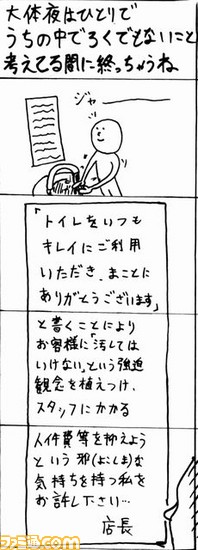 大体夜はひとりで
うちの中でろくでもないこと
考えてる闇に終っちゃうね
ジャ――
「トイレをいつも
キレイにご利用
いただき、まことに
ありがとうございます」
と書くことにより
お客様に「汚しては
いけない」という強迫
観念を植えつけ、
スタッフにかかる
人件費等を抑えよう
という邪(よこしま)な
気持ちを持つ私を
お許し下さい…
店長
ファミ通.com